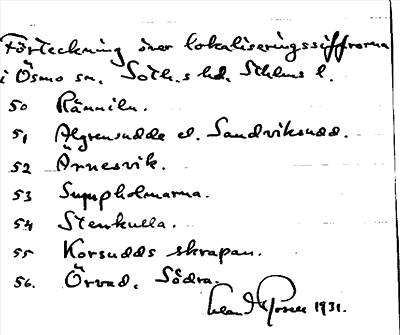 Förteckning över lokaliseringssiffrorna
i Ösmo sn, Soth.s hd, Sthlms l.
50 Rånniln.
51 Algrensudde el. Sandviksudd.
52 Årnesvik.
53 Sumpholmarna.
54 Stenkulla.
55 Korsudds skrapan.
56. Örvad, Södra.
1931.